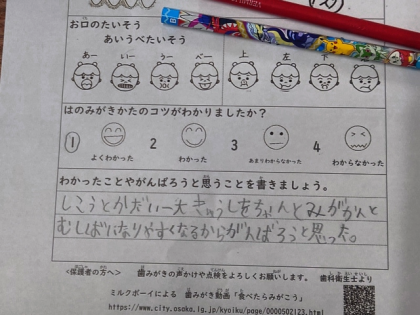 お口のたいそう
あいうべたいそう
あー いー うー べー 上 左 下 右
はのみがきかたのコツがわかりましたか？
1 2 3 4
よくわかった わかった あまりわからなかった わからなかった
わかったことやがんばろうと思うことを書きましょう。
しこうとかだい一大きゅうしをちゃんとみがかんと
むしばになりやすくなるからがんばろうと思った。
<保護者の方へ> 歯みがきの声かけや点検をよろしくお願いします。 歯科衛生士より
ミルクボーイによる 歯みがき動画「食べたらみがこう」
https://www.city.osaka.lg.jp/kyoiku/page/0000502123.html